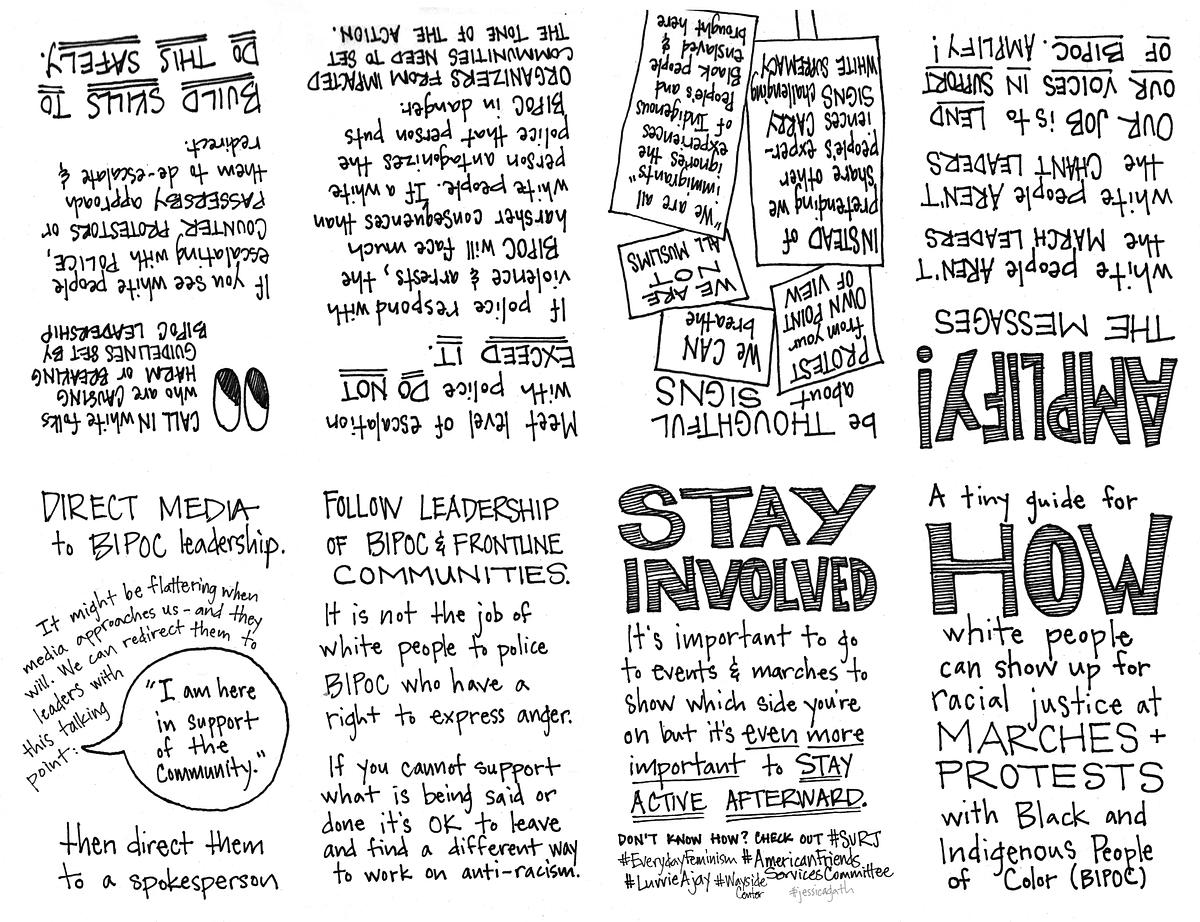 A tiny guide for
HOW
white people
can show up for
racial justice at
MARCHES +
PROTESTS
with Black and
Indigenous People
of Color (BIPOC)
AMPLIFY!
THE MESSAGES
white people AREN'T
the MARCH LEADERS
white people AREN'T
the CHANT LEADERS
OUR JOB is to LEND
OUR VOICES IN SUPPORT
OF BIPOC. AMPLIFY!
be THOUGHTFUL
about SIGNS
PROTEST
from your
OWN POINT
OF VIEW
WE CAN
breathe
WE ARE
NOT
ALL MUSLIMS
INSTEAD of
pretending we
share other
people's exper-
iences CARRY
SIGNS challenging
WHITE SUPREMACY
"We are all
immigrants"
ignores the
experiences
of Indigenous
People's and
Black people
enslaved &
brought here
Meet level of escalation
with police DO NOT
EXCEED IT.
If police respond with
violence & arrests, the
BIPOC will face much
harsher consequences than
white people. If a white
person antagonizes the
police that person puts
BIPOC in danger.
ORGANIZERS FROM IMPACTED
COMMUNITIES NEED TO SET
THE TONE OF THE ACTION.
CALL IN white folks
who are CAUSING
HARM or BREAKING
GUIDELINES SET BY
BIPOC LEADERSHIP
If you see white people
escalating with POLICE,
COUNTER PROTESTORS or
PASSERSBY approach
them to de-escalate &
redirect.
BUILD SKILLS TO
DO THIS SAFELY.
DIRECT MEDIA
to BIPOC leadership.
It might be flattering when
media approaches us - and they
will. We can redirect them to
leaders with
this talking
point:
"I am here
in support
of the
Community."
then direct them
to a spokesperson
FOLLOW LEADERSHIP
OF BIPOC & FRONTLINE
COMMUNITIES.
It is not the job of
white people to police
BIPOC who have a
right to express anger.
If you cannot support
what is being said or
done it's OK to leave
and find a different way
to work on anti-racism.
STAY
INVOLVED
It's important to go
to events & marches to
show which side you're
on but it's even more
important to STAY
ACTIVE AFTERWARD.
DON'T KNOW HOW? CHECK OUT #SURJ
#EverydayFeminism #AmericanFriends
ServicesCommittee
#LuvvieAjay #Wayside
Center
#jessicadath